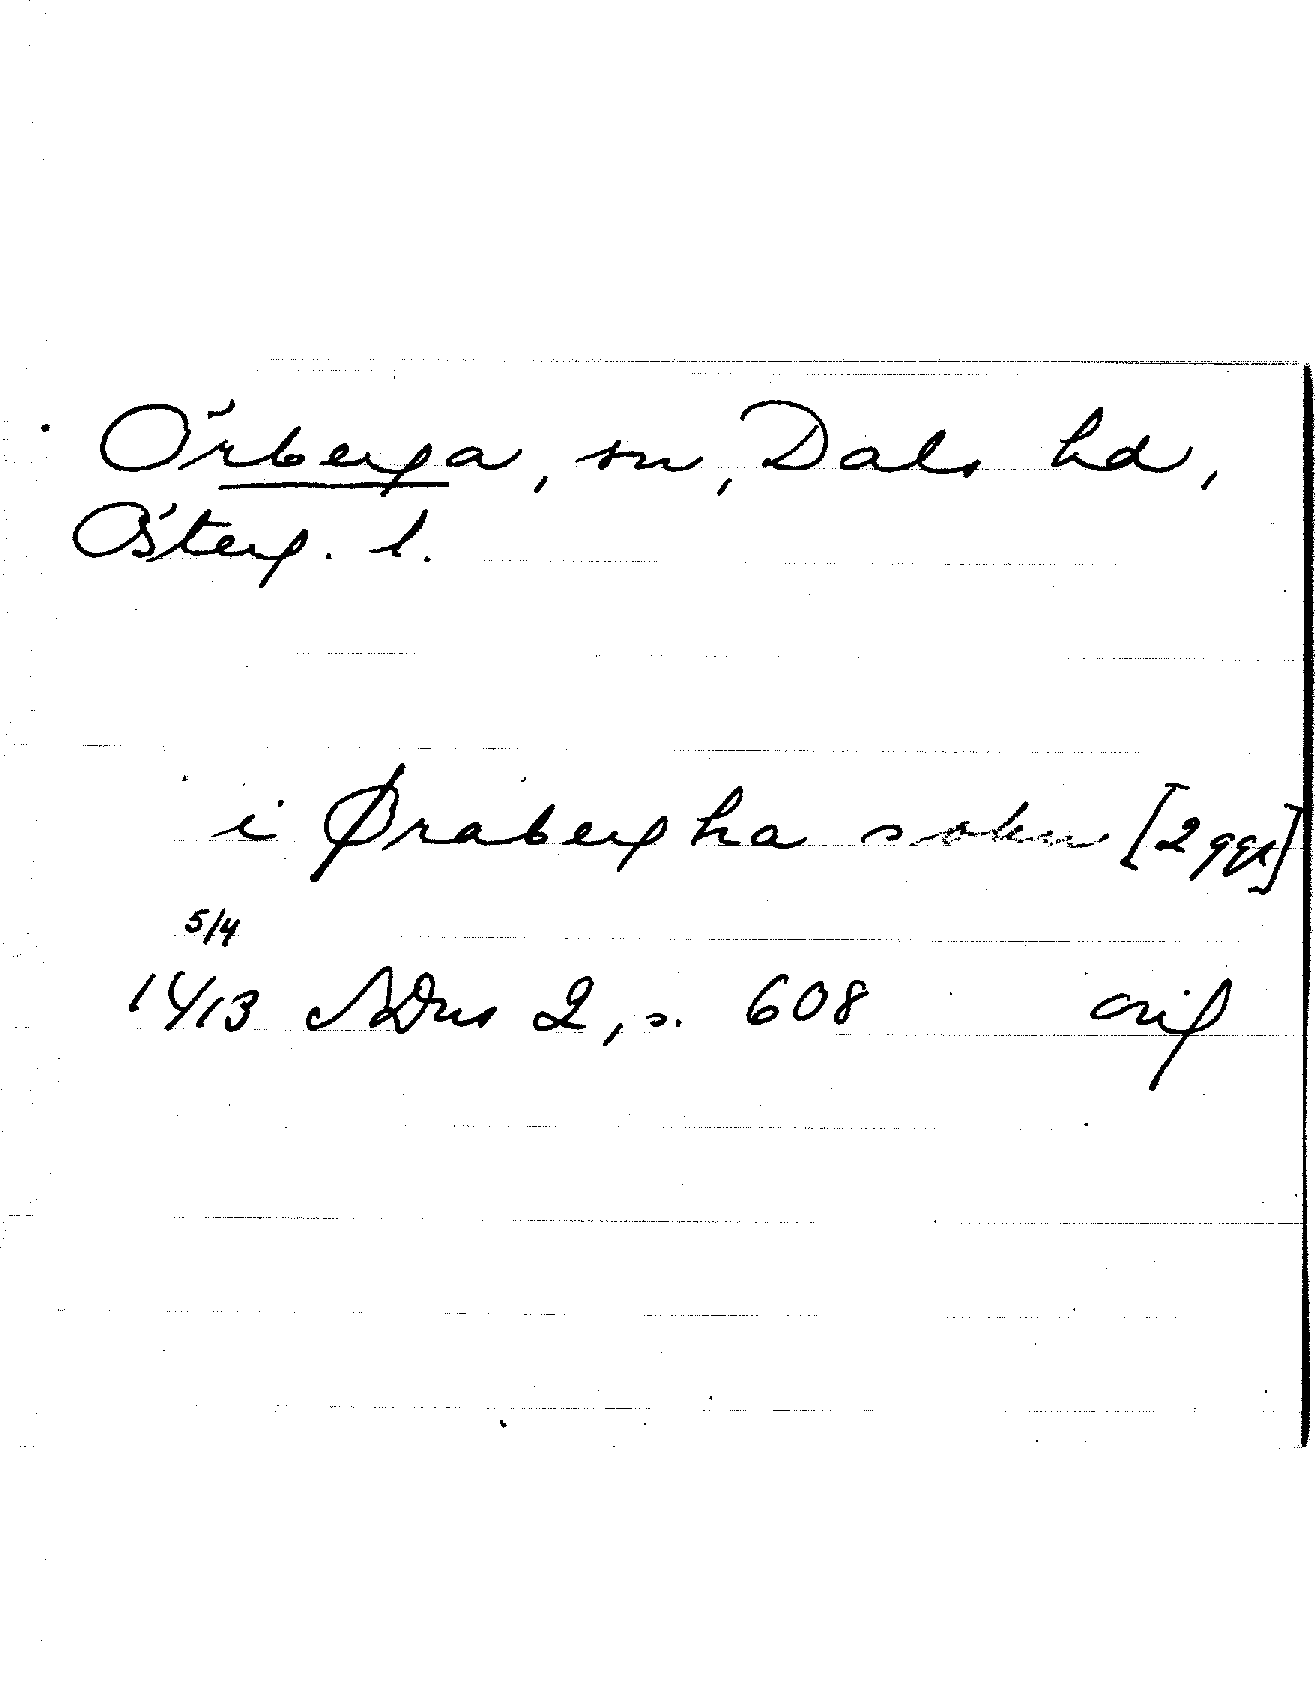 Örberga, sn, Dals hd,
Österg. l.
i Ørabergha sokn [2 ggr]
5/4
1413 SDns 2, s. 608 orig